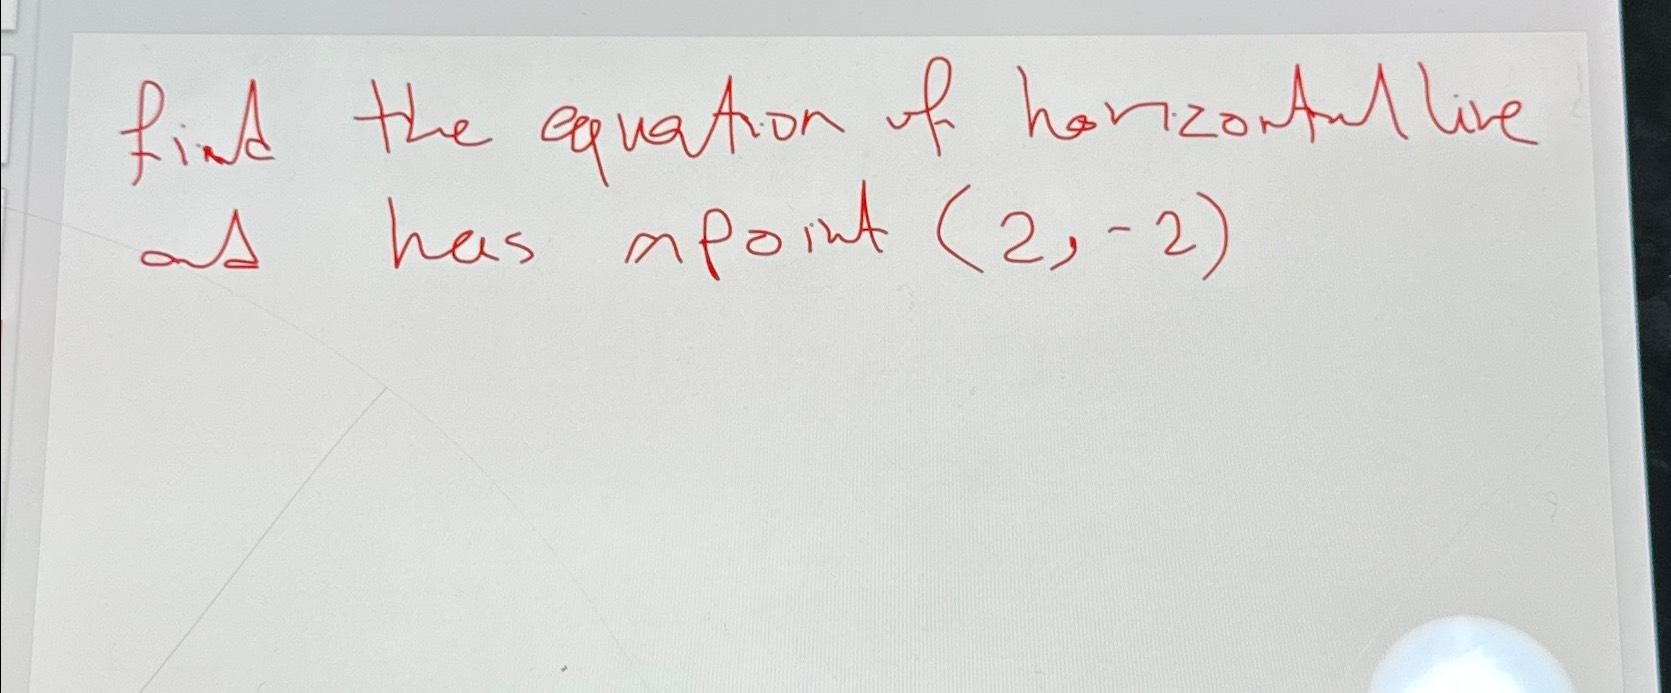 find the equation of horizontal line
and has a point (2, -2)